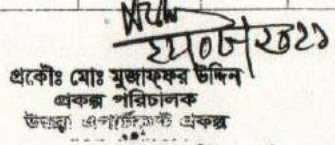 প্রকৌঃ মোঃ মুজাফ্ফর উদ্দিন
প্রকল্প পরিচালক
উত্তরা এপার্টমেন্ট প্রকল্প